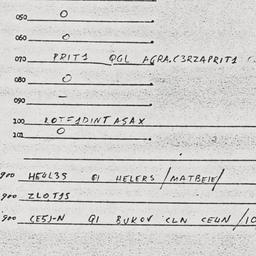 050 O
060 O
070 PRIT1 QGL AGRA.C3RZAPRIT1
080 O
090 –
100 ROT=1DINTASAX
101 O
900 HE4L3S GI HELERS/MATBEIE/
900 ZLOT1S
900 CE5)-N GI BUKOV CLN CE4N/10